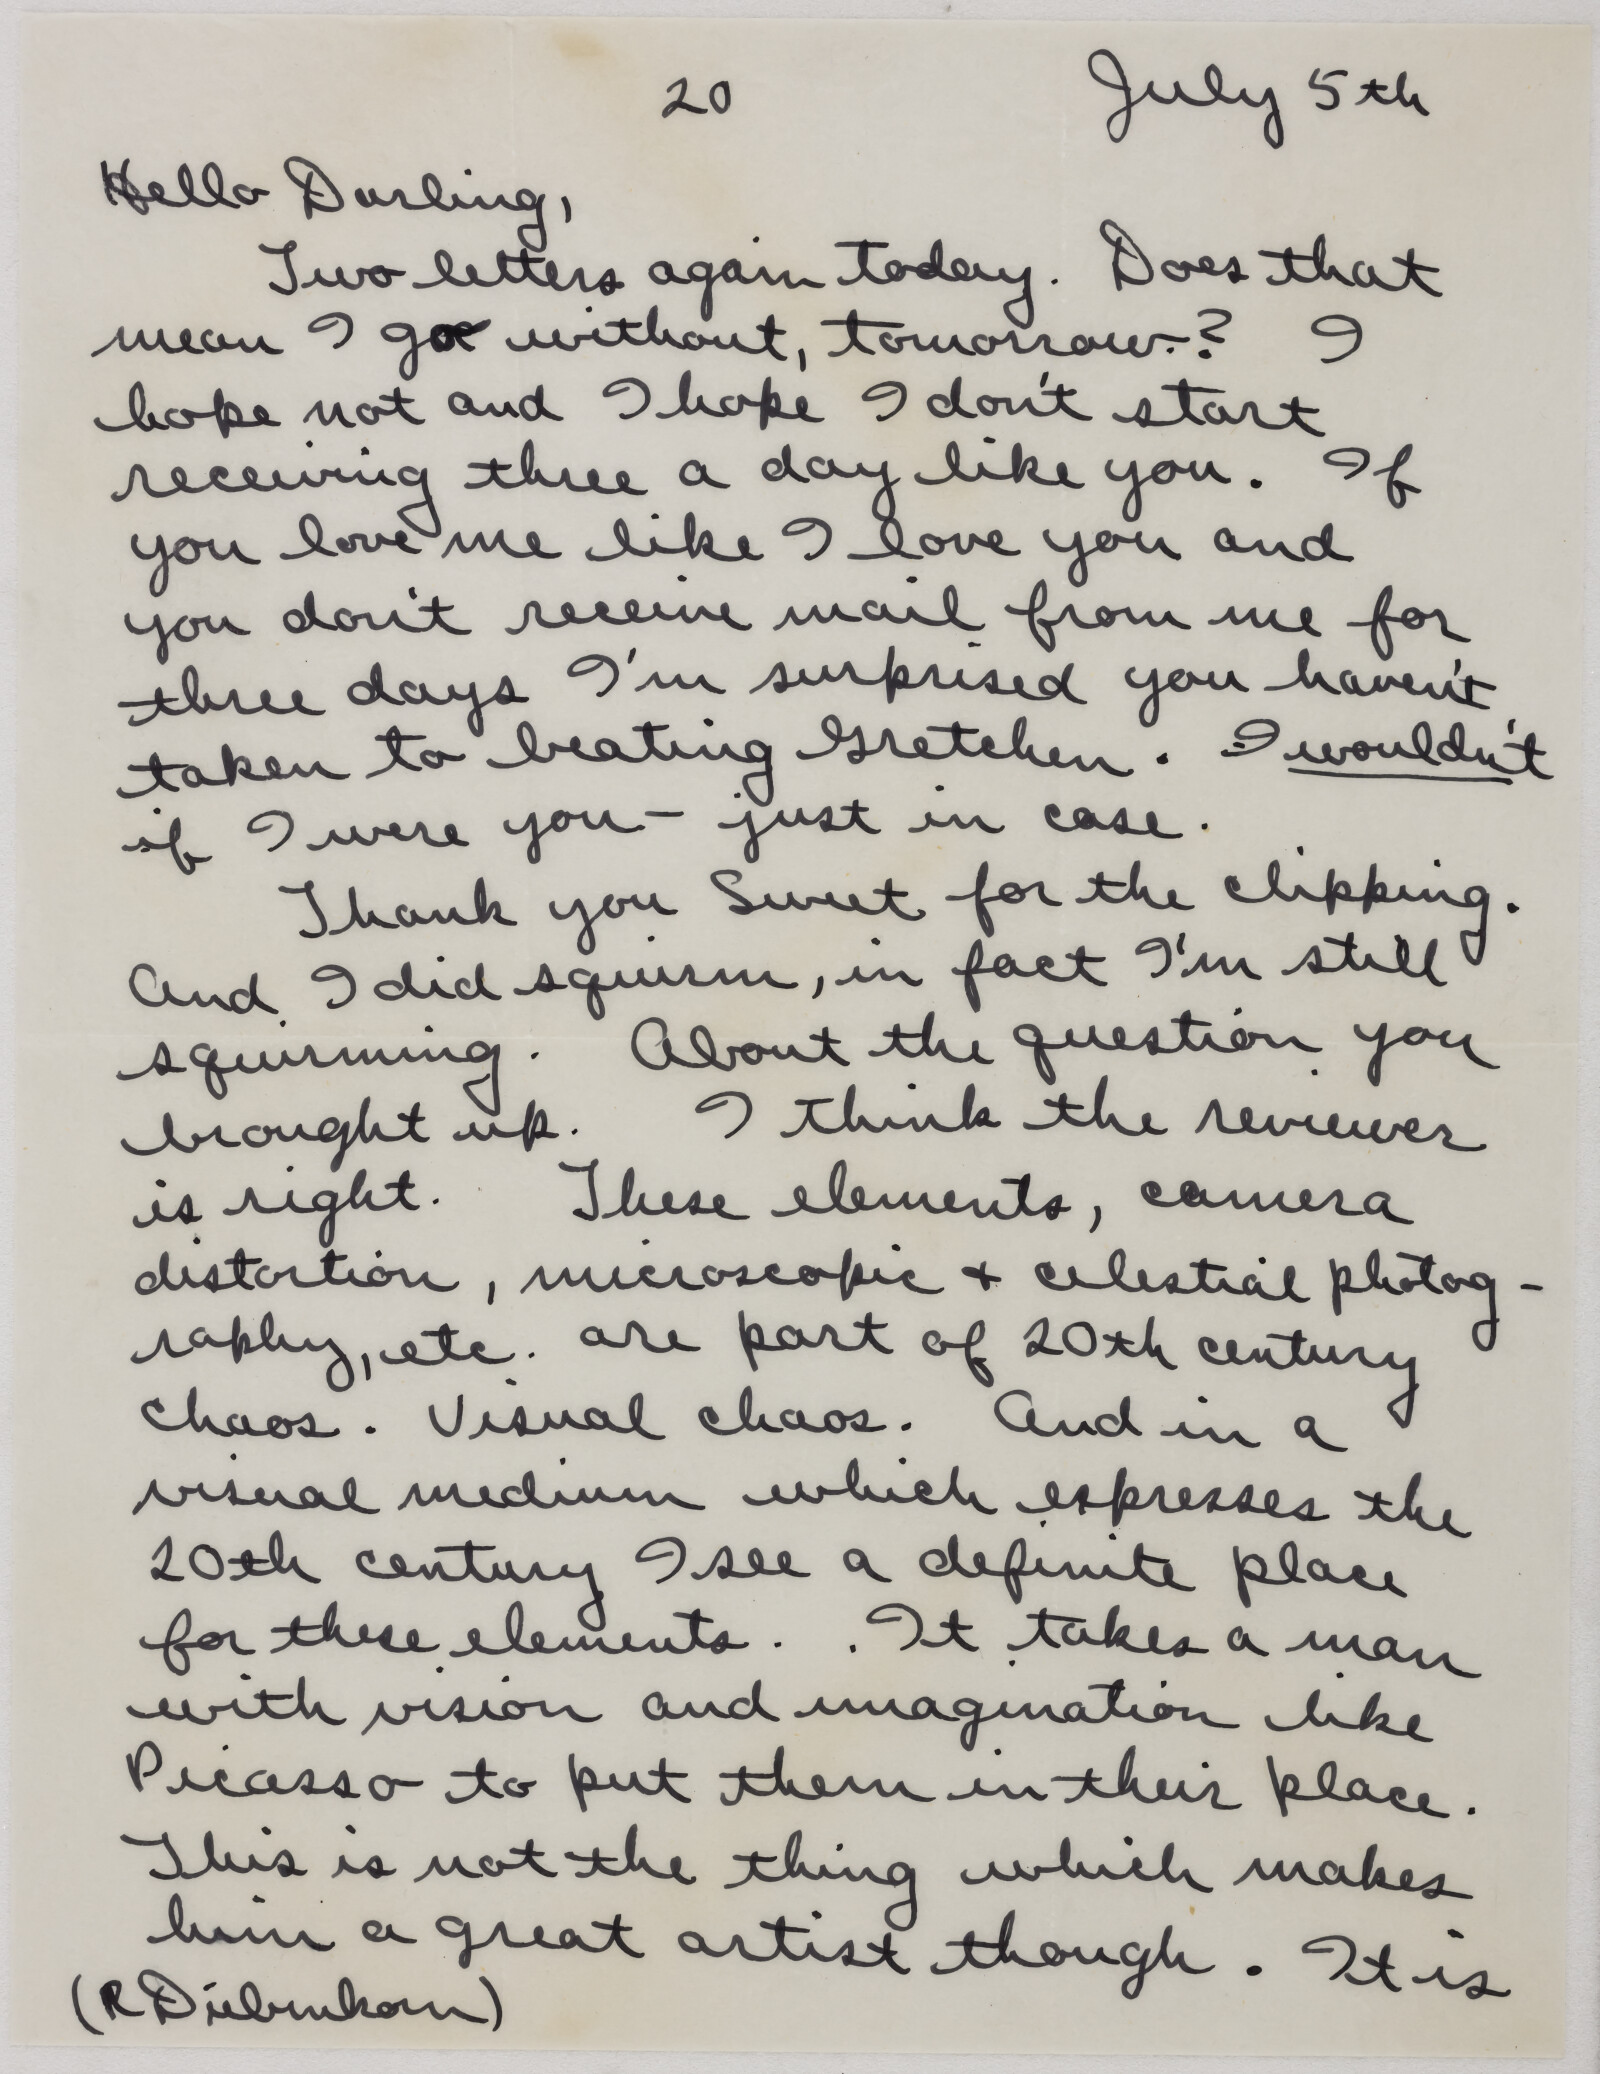 20 July 5th
Hello Darling,
Two letters again today. Does that
mean I go without, tomorrow? I
hope not and I hope I don't start
receiving three a day like you. If
you love me like I love you and
you don't receive mail from me for
three days I'm surprised you haven't
taken to beating Gretchen. I wouldn't
if I were you – just in case.
Thank you Sweet for the clipping.
And I did squirm, in fact I'm still
squirming. About the question you
brought up. I think the reviewer
is right. These elements, camera
distortion, microscopic + celestial photog-
raphy, etc. are part of 20th century
chaos. Visual chaos. And in a
visual medium which expresses the
20th century I see a definite place
for these elements. It takes a man
with vision and imagination like
Picasso to put them in their place.
This is not the thing which makes
him a great artist though. It is
(R Diebenkorn)